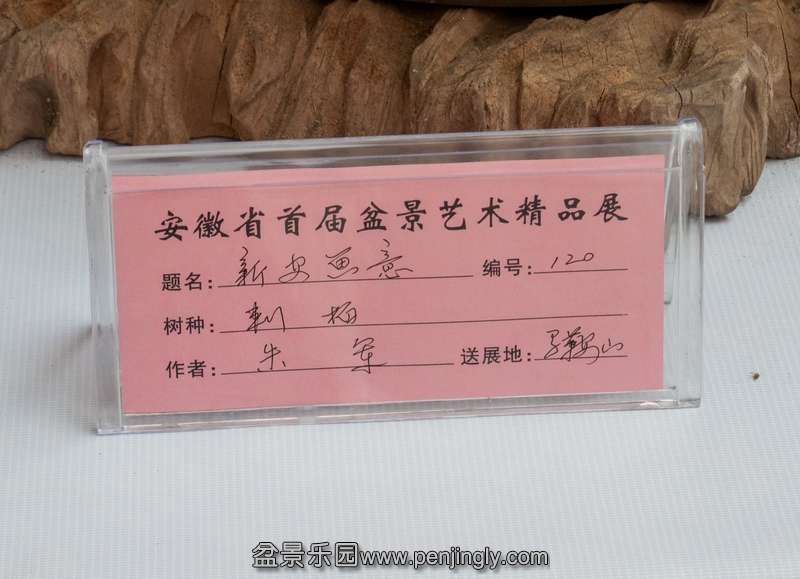 安徽省首届盆景艺术精品展
题名：新安画意 编号：120
树种：刺柏
作者：朱军 送展地：马鞍山
盆景乐园www.penjingly.com